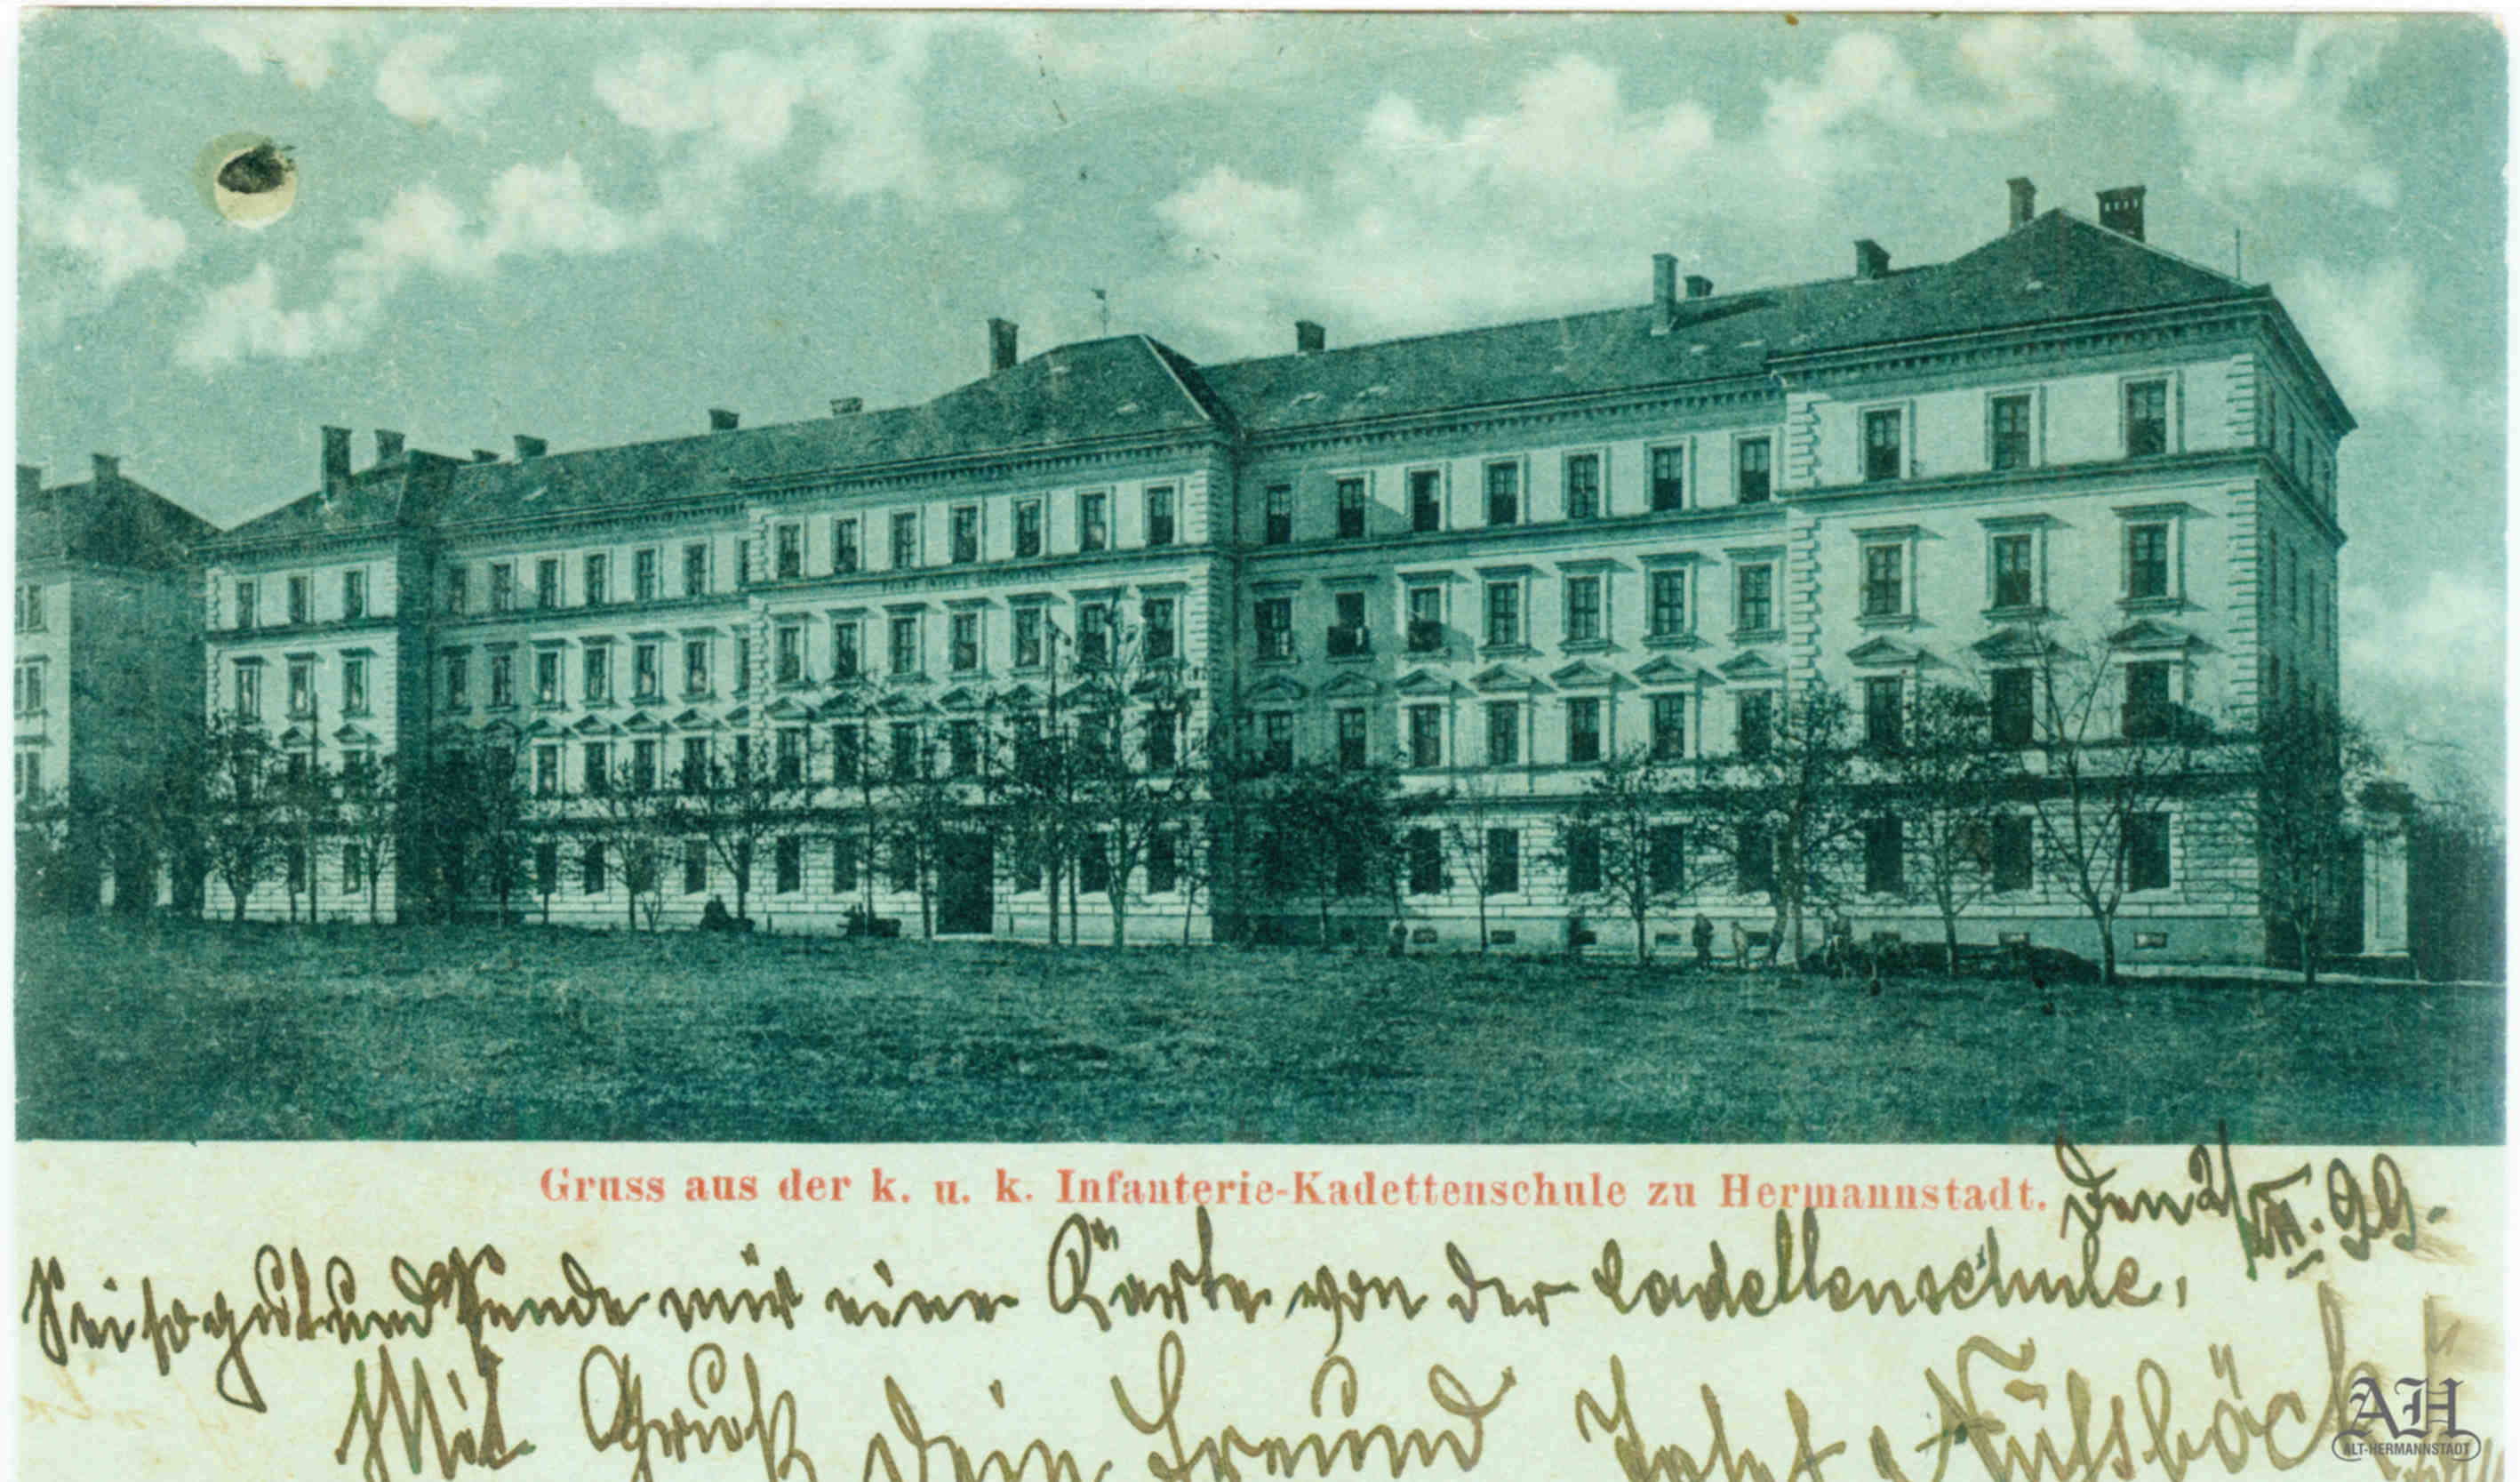 Gruss aus der k. u. k. Infanterie-Kadettenschule zu Hermannstadt.
Den 2/VII. 99.
Sei so gut und sende mir eine Karte von der Cadettenschule,
Mit Gruß dein Freund
AH
ALT-HERMANNSTADT